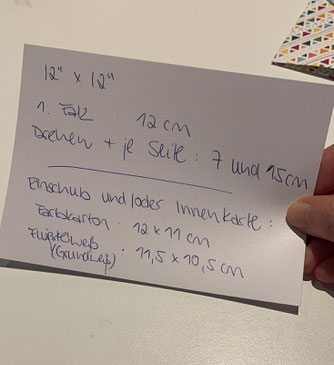 12" x 12"
1. Falz : 12 cm
Drehen + je Seite : 7 und 15cm
Einschub und/oder Innenkarte :
Farbkarton : 12 x 11 cm
Flüsterweiß : 11,5 x 10,5 cm
(Grundweiß)